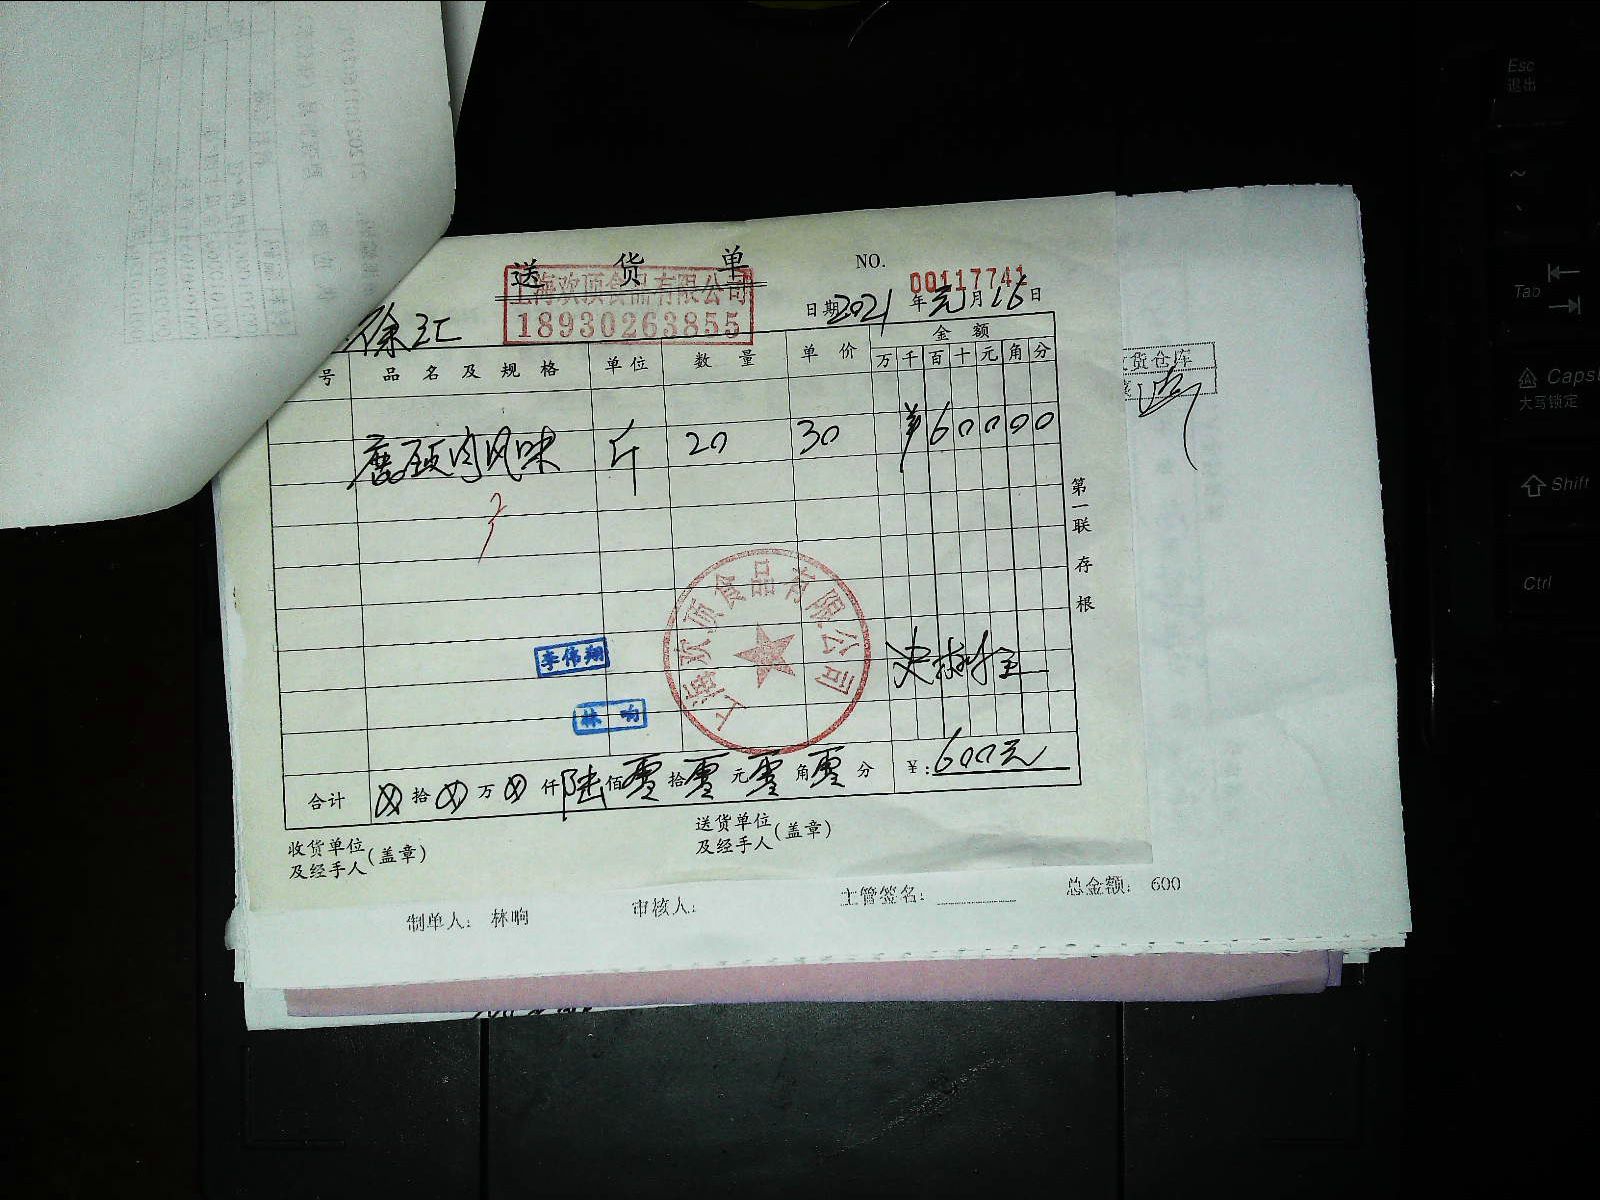 送 货 单
NO.
00117741
上海欢顶食品有限公司
18930263855
日期 2021 年 元 月 16 日
徐汇
号 品名及规格 单位 数量 单价 金额
万 千 百 十 元 角 分
收货仓库
斤 20 30 ¥ 6 0 0 0 0
第一联 存根
上海欢顶食品有限公司
李伟翔
林响
合计 拾 万 仟 陆 佰 零 拾 零 元 零 角 零 分 ¥: 600元
收货单位及经手人(盖章)
送货单位及经手人(盖章)
制单人: 林响 审核人: 主管签名: 总金额: 600
Esc
退出
~
Tab
Caps
大写锁定
Shift
Ctrl